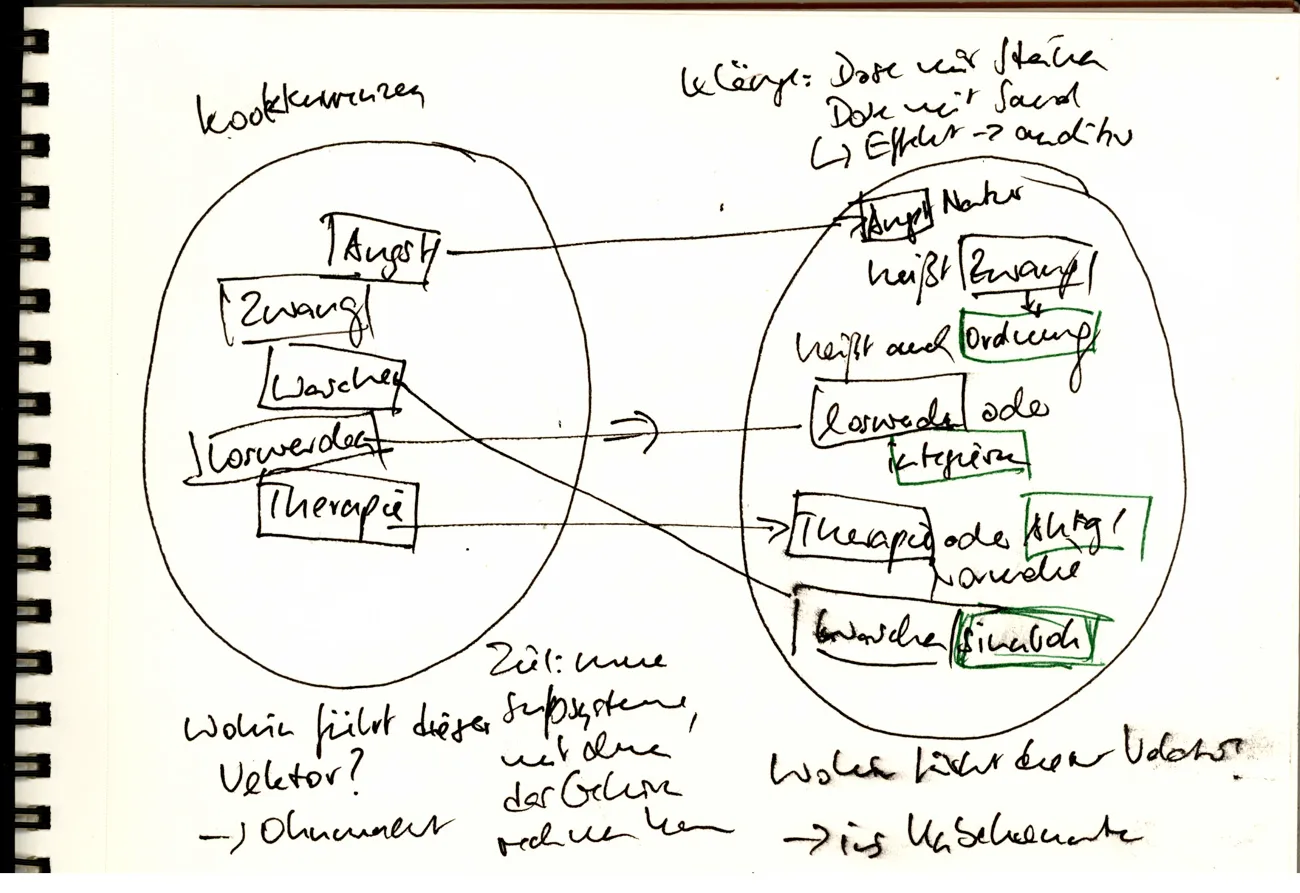 Kookkurrenzen
Klänge: Dose mit Steinen
Dose mit Sand
↳ Effekt → auditiv
Angst
Zwang
Waschen
Loswerden
Therapie
Angst Natur
heißt Zwang
heißt auch Ordnung
loswerden oder
integrieren
Therapie oder
Waschen sinnlich
Wohin führt dieser
Vektor?
→ Ohnmacht
Ziel: neue
Subsysteme,
mit denen
das Gehirn
rechnen kann
Wohin führt dieser Vektor?
→ ins Unbekannte